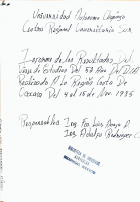 Universidad Autonoma Chapingo
Centro Regional Universitario Sur
Informe de los Resultados Del
Viaje de Estudios Del 5º Año Del D.I.A.
Realizado A la Región Costa De
Oaxaca Del 4 al 15 de Nov. 1985
Responsables: Ing. Fco. Luis Araujo A.
Ing. Adalgo Rodriguez C.